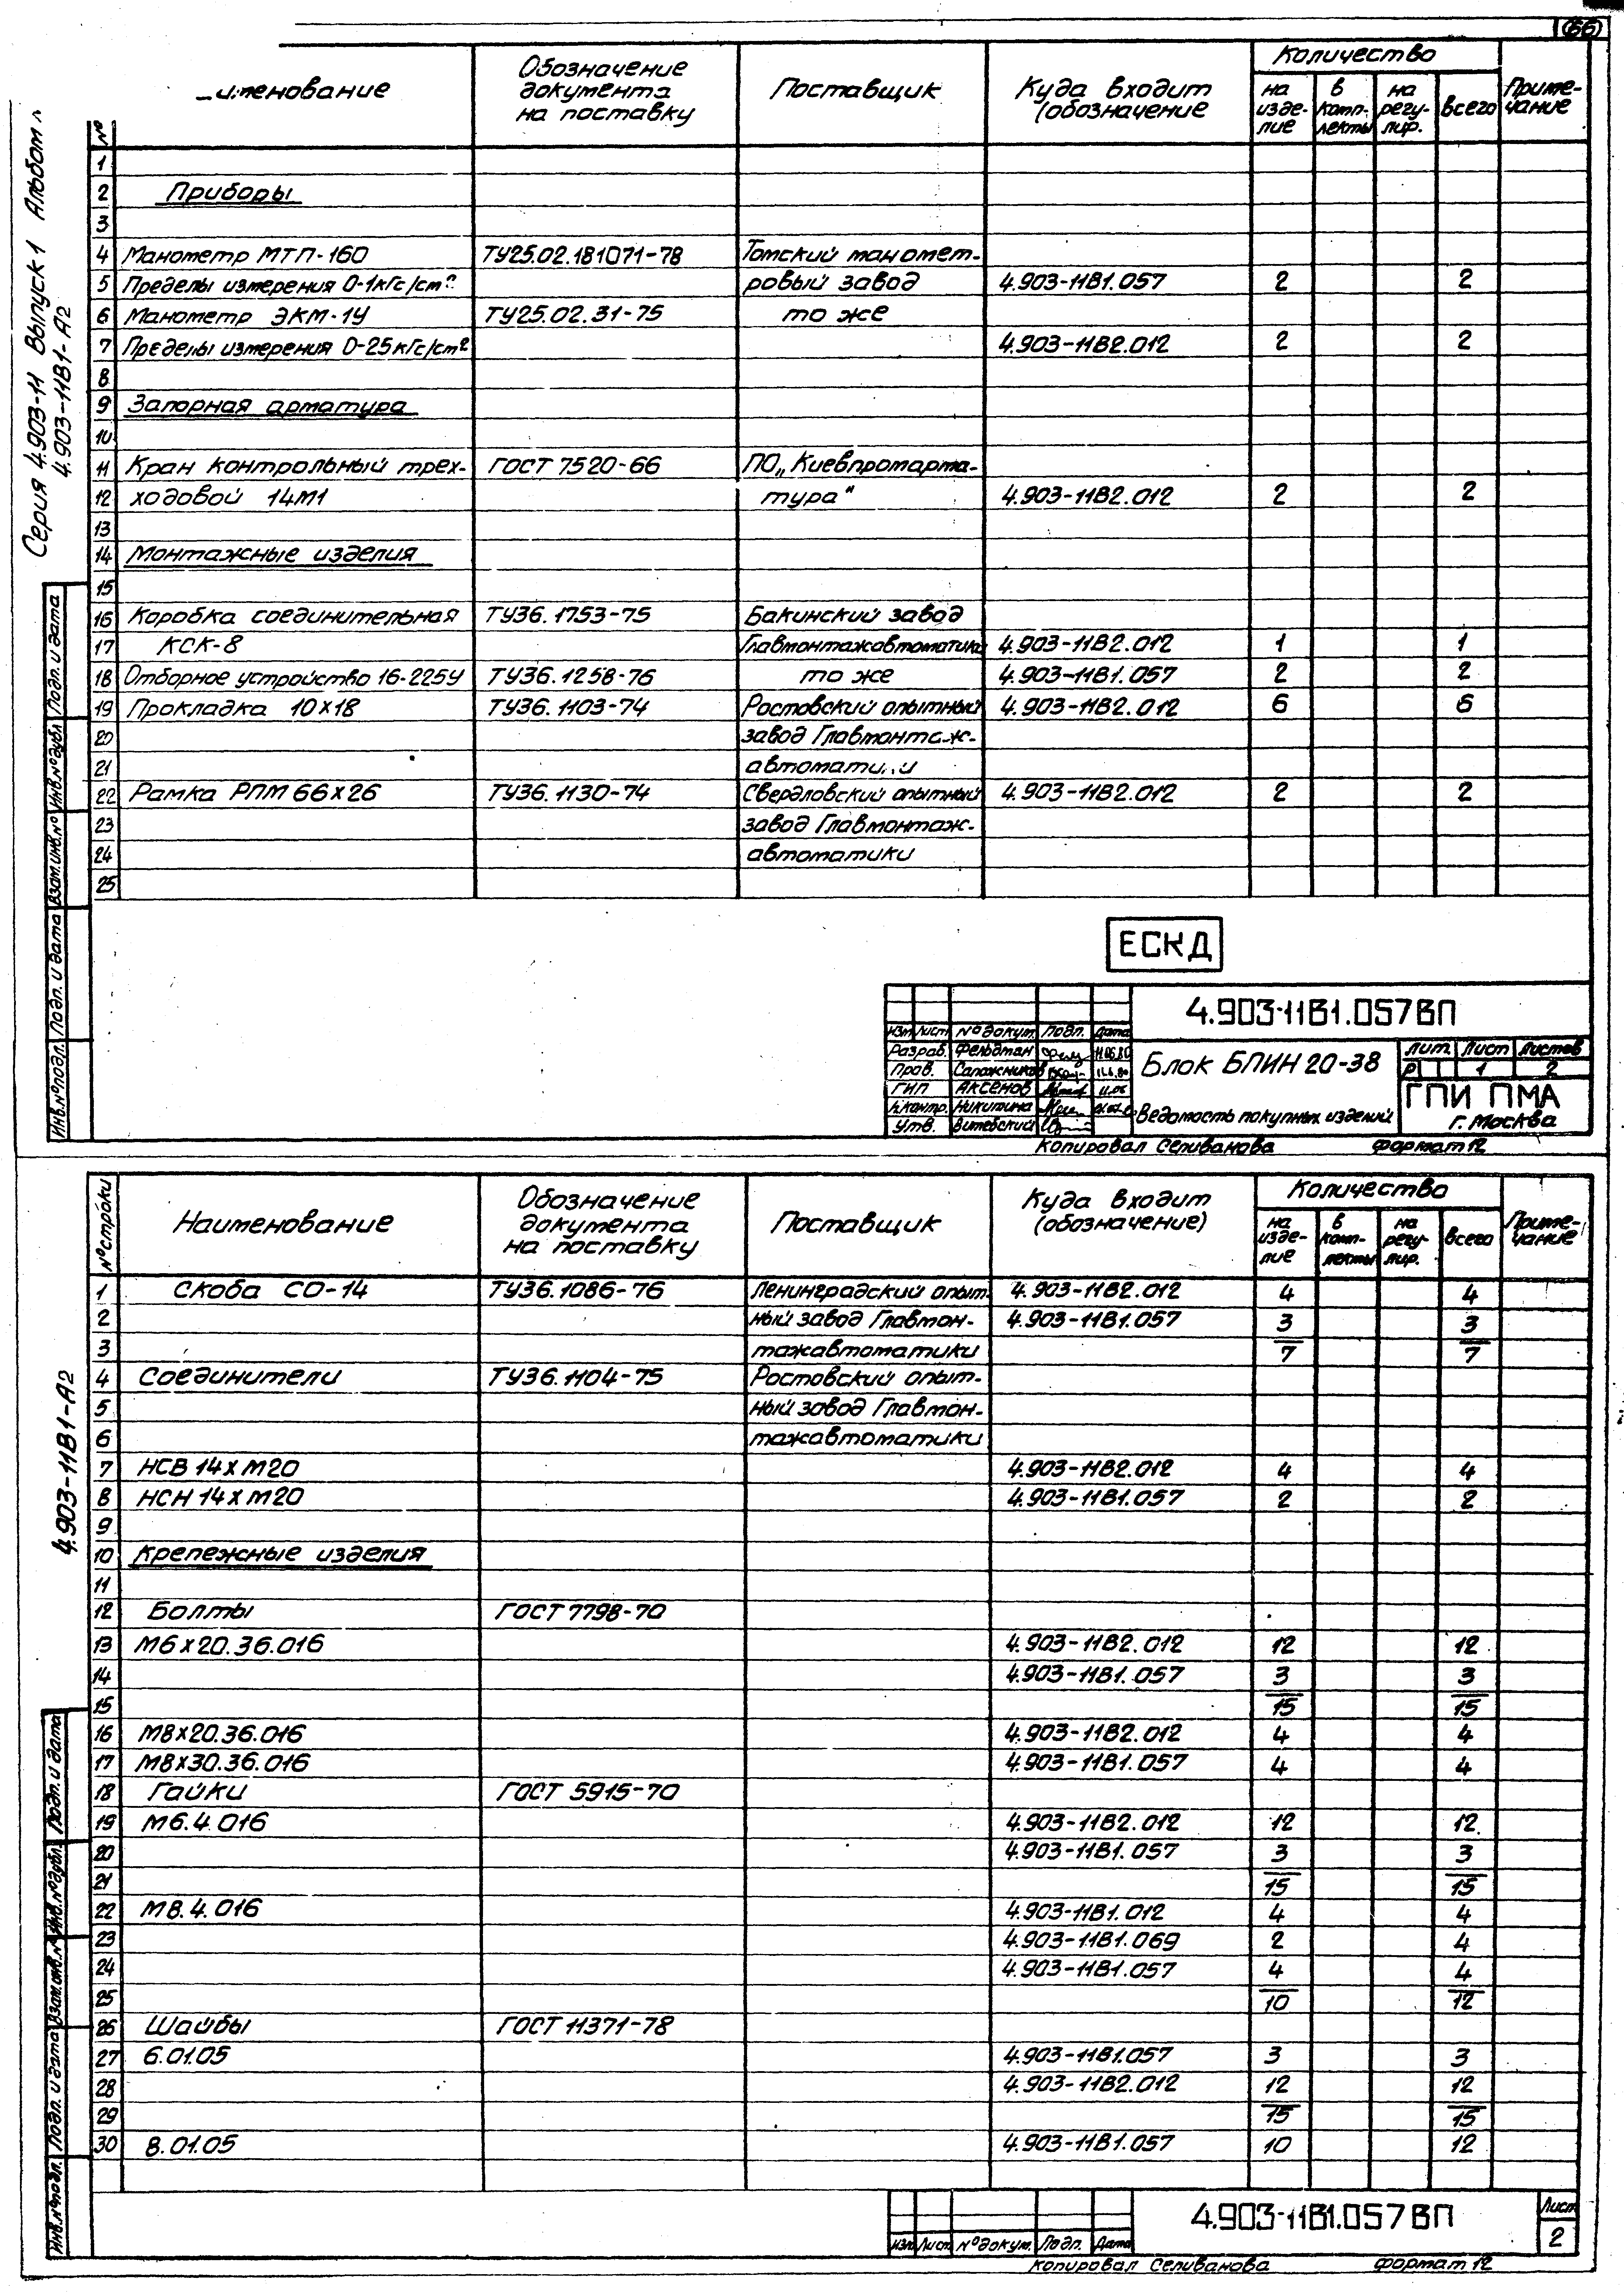 66
Серия 4.903-11 Выпуск 1 Альбом
4.903-11В1-А2
№ Обозначение документа на поставку Поставщик Куда входит (обозначение Количество Приме-чание
на изде-лие в комп-лекты на регу-лир. всего
1
2 Приборы
3
4 Манометр МТП-160 ТУ25.02.181071-78 Томский маномет-
5 Пределы измерения 0-1кГс/см² ровый завод 4.903-11В1.057 2 2
6 Манометр ЭКМ-1У ТУ25.02.31-75 то же
7 Пределы измерения 0-25кГс/см² 4.903-11В2.012 2 2
8
9 Запорная арматура
10
11 Кран контрольный трех- ГОСТ 7520-66 ПО„Киевпромарма-
12 ходовой 14М1 тура" 4.903-11В2.012 2 2
13
14 Монтажные изделия
15
16 Коробка соединительная ТУ36.1753-75 Бакинский завод
17 КСК-8 Главмонтажавтоматика 4.903-11В2.012 1 1
18 Отборное устройство 16-225У ТУ36.1258-76 то же 4.903-11В1.057 2 2
19 Прокладка 10х18 ТУ36.1103-74 Ростовский опытный 4.903-11В2.012 6 6
20 завод Главмонтаж-
21
22 Рамка РПМ 66х26 ТУ36.1130-74 Свердловский опытный 4.903-11В2.012 2 2
23 завод Главмонтаж-
24 автоматики
25
ЕСКД
4.903-11В1.057ВП
Изм Лист № докум. Подп. Дата
Разраб. Фельдман 11.06.80
Пров. Сапожников 11.6.80
ГИП Аксенов 11.06
Н.контр. Никитина
Утв. Витебский
Блок БПИН 20-38
Ведомость покупных изделий
Лит. Лист Листов
Р 1 2
ГПИ ПМА
г. Москва
Копировал Селиванова Формат 12
Инв.№подл. Подп. и дата Взам.инв.№ Инв.№дубл. Подп. и дата
4.903-11В1-А2
№ строки Наименование Обозначение документа на поставку Поставщик Куда входит (обозначение) Количество Приме-чание
на изде-лие в комп-лекты на регу-лир. всего
1 Скоба СО-14 ТУ36.1086-76 Ленинградский опыт- 4.903-11В2.012 4 4
2 ный завод Главмон- 4.903-11В1.057 3 3
3 тажавтоматики 7 7
4 Соединители ТУ36.1104-75 Ростовский опыт-
5 ный завод Главмон-
6 тажавтоматики
7 НСВ 14хМ20 4.903-11В2.012 4 4
8 НСН 14хМ20 4.903-11В1.057 2 2
9
10 Крепежные изделия
11
12 Болты ГОСТ 7798-70
13 М6х20.36.016 4.903-11В2.012 12 12
14 4.903-11В1.057 3 3
15 15 15
16 М8х20.36.016 4.903-11В2.012 4 4
17 М8х30.36.016 4.903-11В1.057 4 4
18 Гайки ГОСТ 5915-70
19 М6.4.016 4.903-11В2.012 12 12
20 4.903-11В1.057 3 3
21 15 15
22 М8.4.016 4.903-11В1.012 4 4
23 4.903-11В1.069 2 4
24 4.903-11В1.057 4 4
25 10 12
26 Шайбы ГОСТ 11371-78
27 6.01.05 4.903-11В1.057 3 3
28 4.903-11В2.012 12 12
29 15 15
30 8.01.05 4.903-11В1.057 10 12
4.903-11В1.057ВП
Лист
2
Изм Лист № докум. Подп. Дата
Копировал Селиванова Формат 12
Инв.№подл. Подп. и дата Взам.инв.№ Инв.№дубл. Подп. и дата